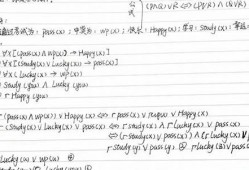 公式 (P∧Q)∨R ⇔ (P∨R) ∧ (Q∨R)
过考试为: pass(x); 中奖为: wp(x); 快乐: Happy(x); 学习: Study(x);
∀x[(pass(x)∧wp(x)) → Happy(x)]
∀x[(Study(x)∨Lucky(x)) → pass(x)]
∀x(Lucky(x) → wp(x))
Study(you) ∧ Lucky(you)
¬Happy(you)
(pass(x)∧wp(x))∨Happy(x) ⇔ ¬pass(x)∨¬wp(x)∨Happy(x)
(Study(x)∨Lucky(x))∨pass(x) ⇔ (¬Study(x)∧¬Lucky(x))∨pass(x)
⇔ (¬Study(x)∨pass(x))∧(¬Lucky(x)∨
¬Study(y)∨pass(y) ¬Lucky(z)∨pass(z)
Lucky(u)∨wp(u)